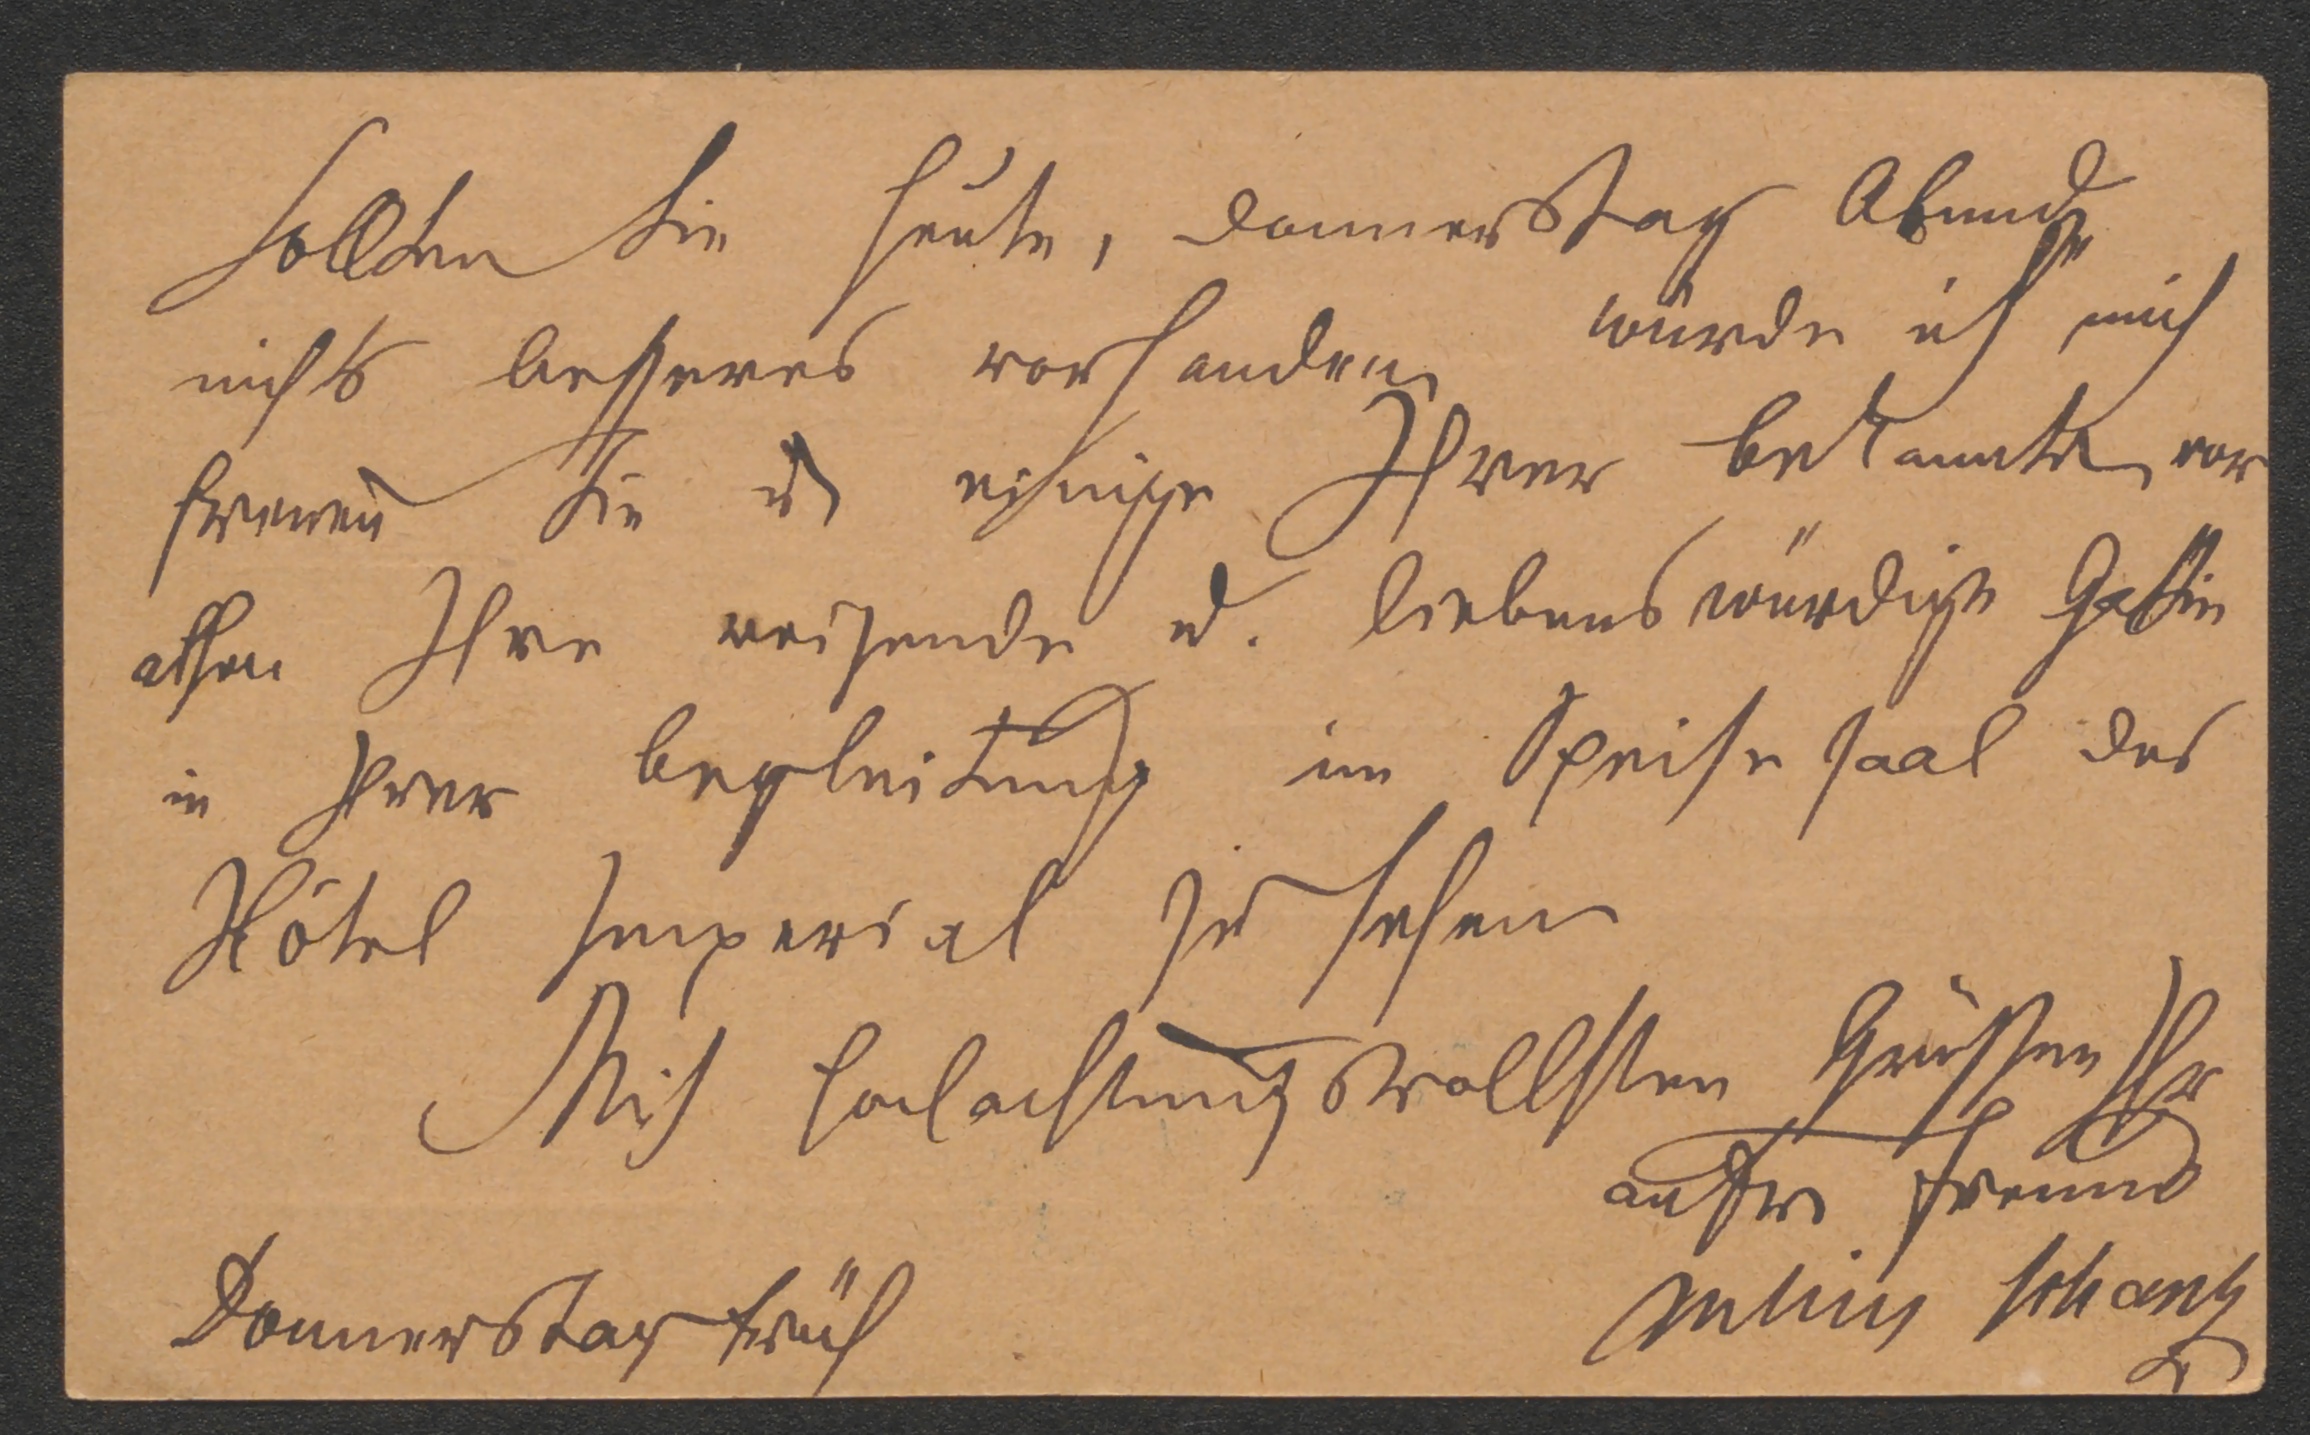 Sollten Sie heute, Donnerstag Abend
nichts besseres vorhanden würde ich mich
freuen Sie u einige Ihrer bekannten vor
allem Ihre reizende u. liebenswürdige Gattin
in Ihrer begleitung im Speisesaal des
Hôtel Imperial zu sehen
Mit hochachtungsvollsten Grüssen Ihr
Freund
Donnerstag früh
Julius Schanz